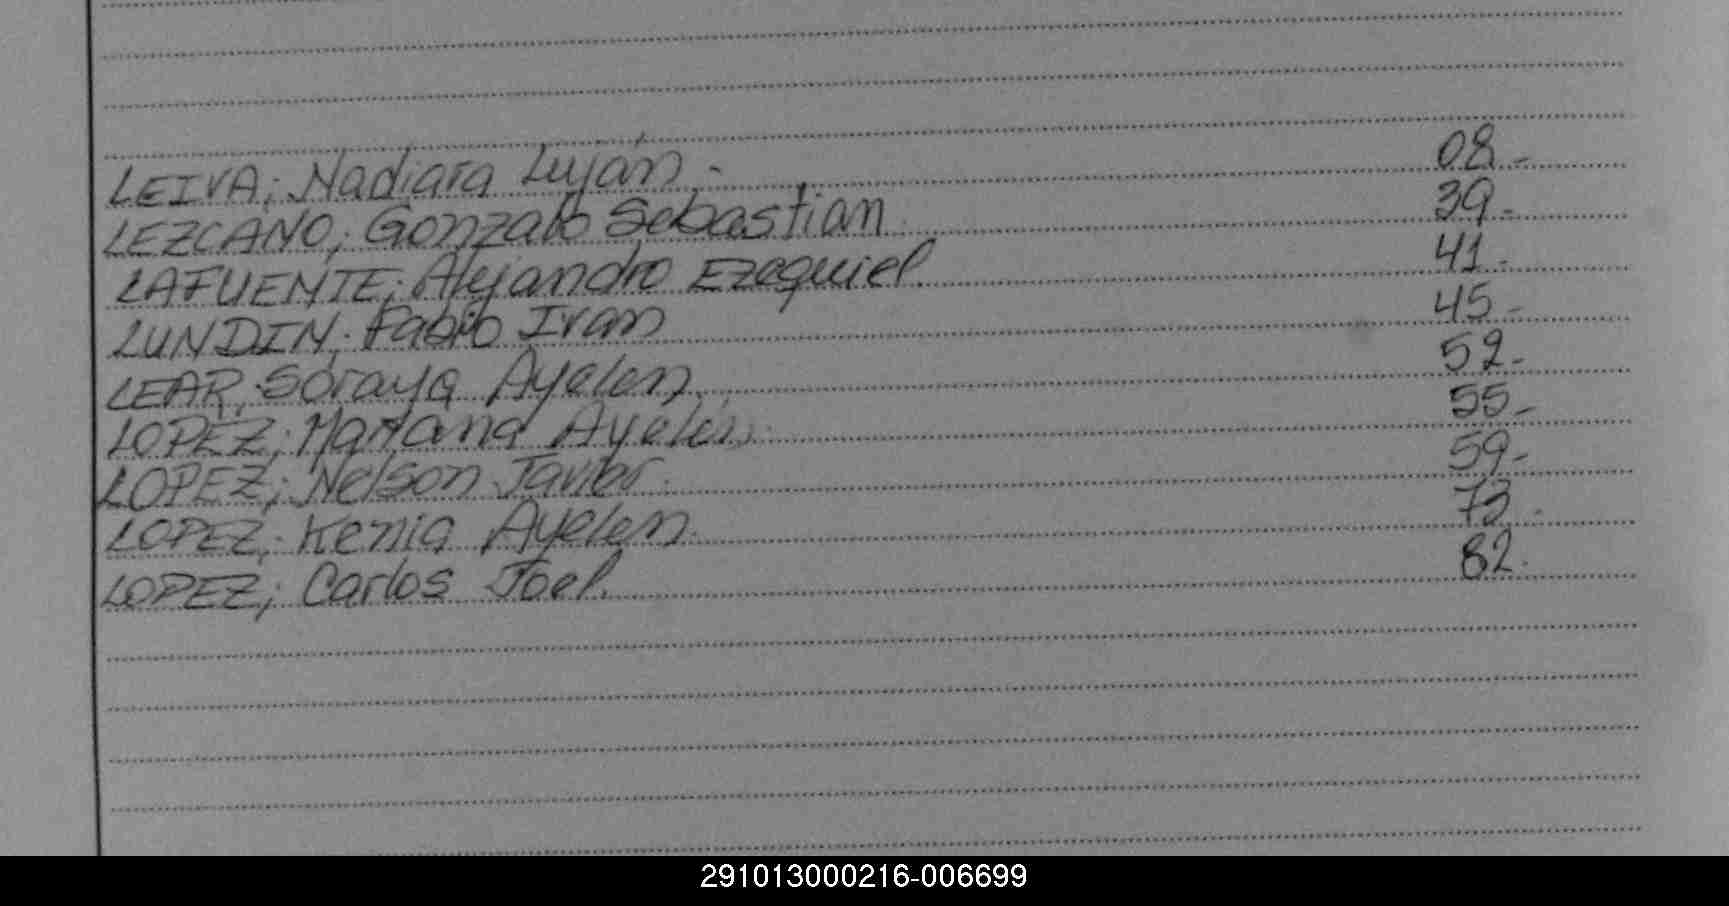 LEIVA; Nadiara Luján.- 08.-
LEZCANO; Gonzalo Sebastian. 39.-
LAFUENTE; Alejandro Ezequiel. 41.-
LUNDIN; Fabio Ivan 45.-
LEAR; Soraya Ayelen. 52.-
LOPEZ; Mariana Ayelén. 55.-
LOPEZ; Nelson Javier. 59.-
LOPEZ; Kenia Ayelen. 73.
LOPEZ; Carlos Joel. 82.
291013000216-006699